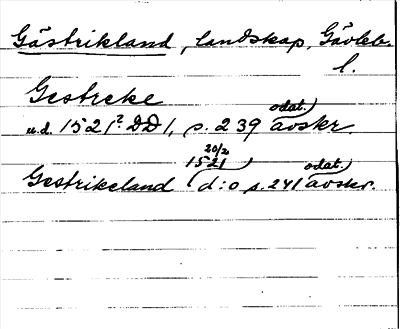 Gästrikland, landskap, Gävleb.
l.
Gestreke
odat.)
u.d. 1521 (? DD1, s. 239 avskr.
20/2
1521
odat.)
Gestrikeland (d:o s. 241 avskr.